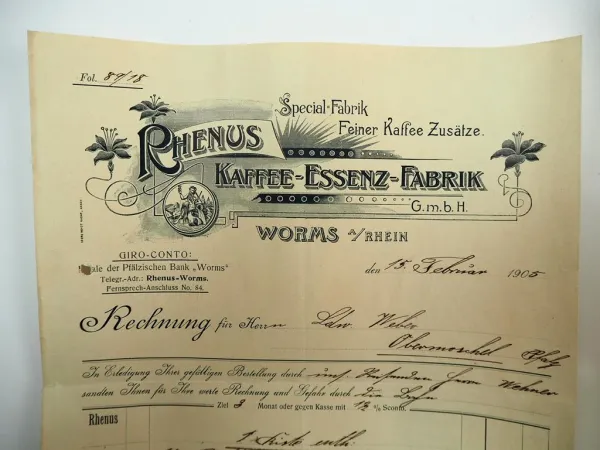 Fol. 89/18
Special-Fabrik
Feiner Kaffee Zusätze.
RHENUS
KAFFEE-ESSENZ-FABRIK
G.m.b.H.
WORMS A/RHEIN
GIRO-CONTO:
ale der Pfälzischen Bank „Worms"
Telegr.-Adr.: Rhenus-Worms.
Fernsprech-Anschluss No. 84.
den 15. Februar 1905
Rechnung für Herrn Ldw. Weber
Obermoschel Pfalz
In Erledigung Ihrer gefälligen Bestellung durch uns. Reisenden Herrn
sandten Ihnen für Ihre werte Rechnung und Gefahr durch die Bahn
Ziel 3 Monat oder gegen Kasse mit % Sconto.
Rhenus
1 Kiste enth.